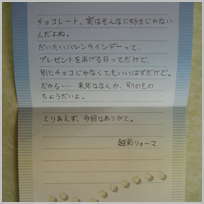 チョコレート、実はそんなに好きじゃない
んだよね。
だいたいバレンタインデーって、
プレゼントをあげる日ってだけで、
別にチョコじゃなくてもいいはずだけど。
だから……来年はなんか、別のもの
ちょうだいよ。
とりあえず、今回はありがと。
越前リョーマ